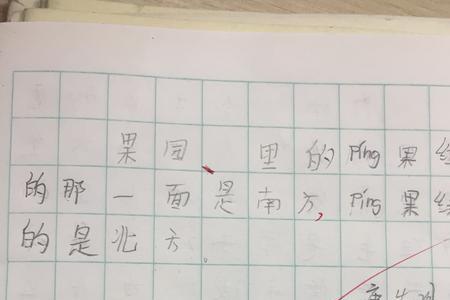 果园、里的Ping果红
的那一面是南方,Ping果绿
的是北方。